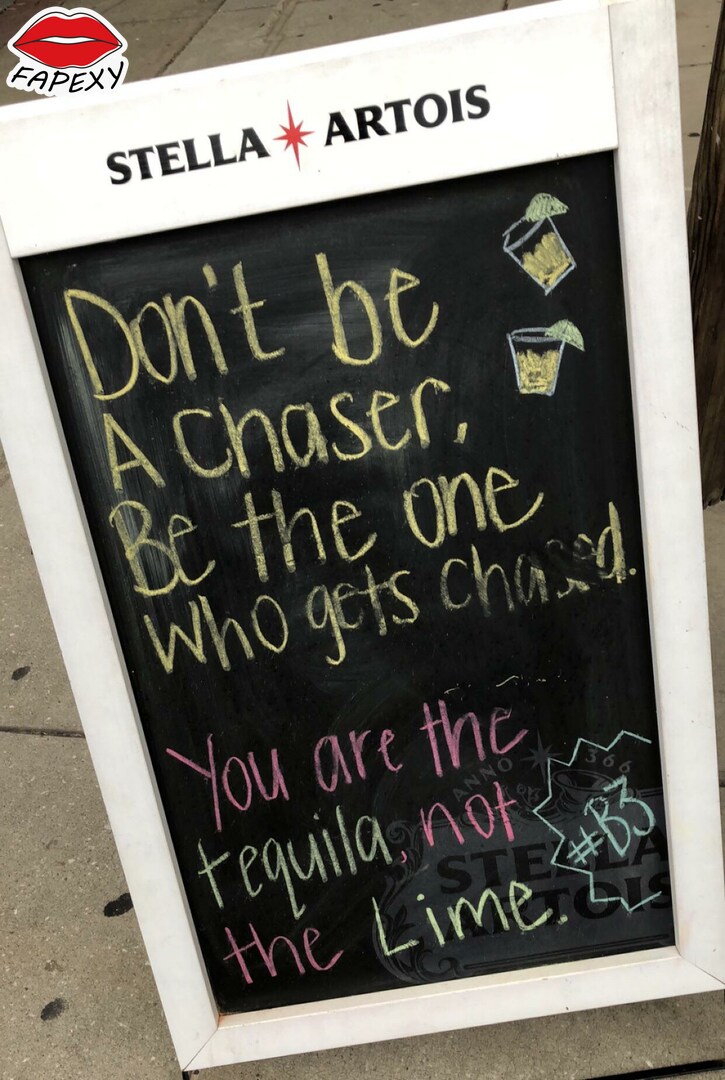 FAPEXY
STELLA ARTOIS
Don't be
A chaser,
Be the one
who gets chased.
You are the
tequila, not
the Lime.
#B3
ANNO 1366
STELLA
ARTOIS